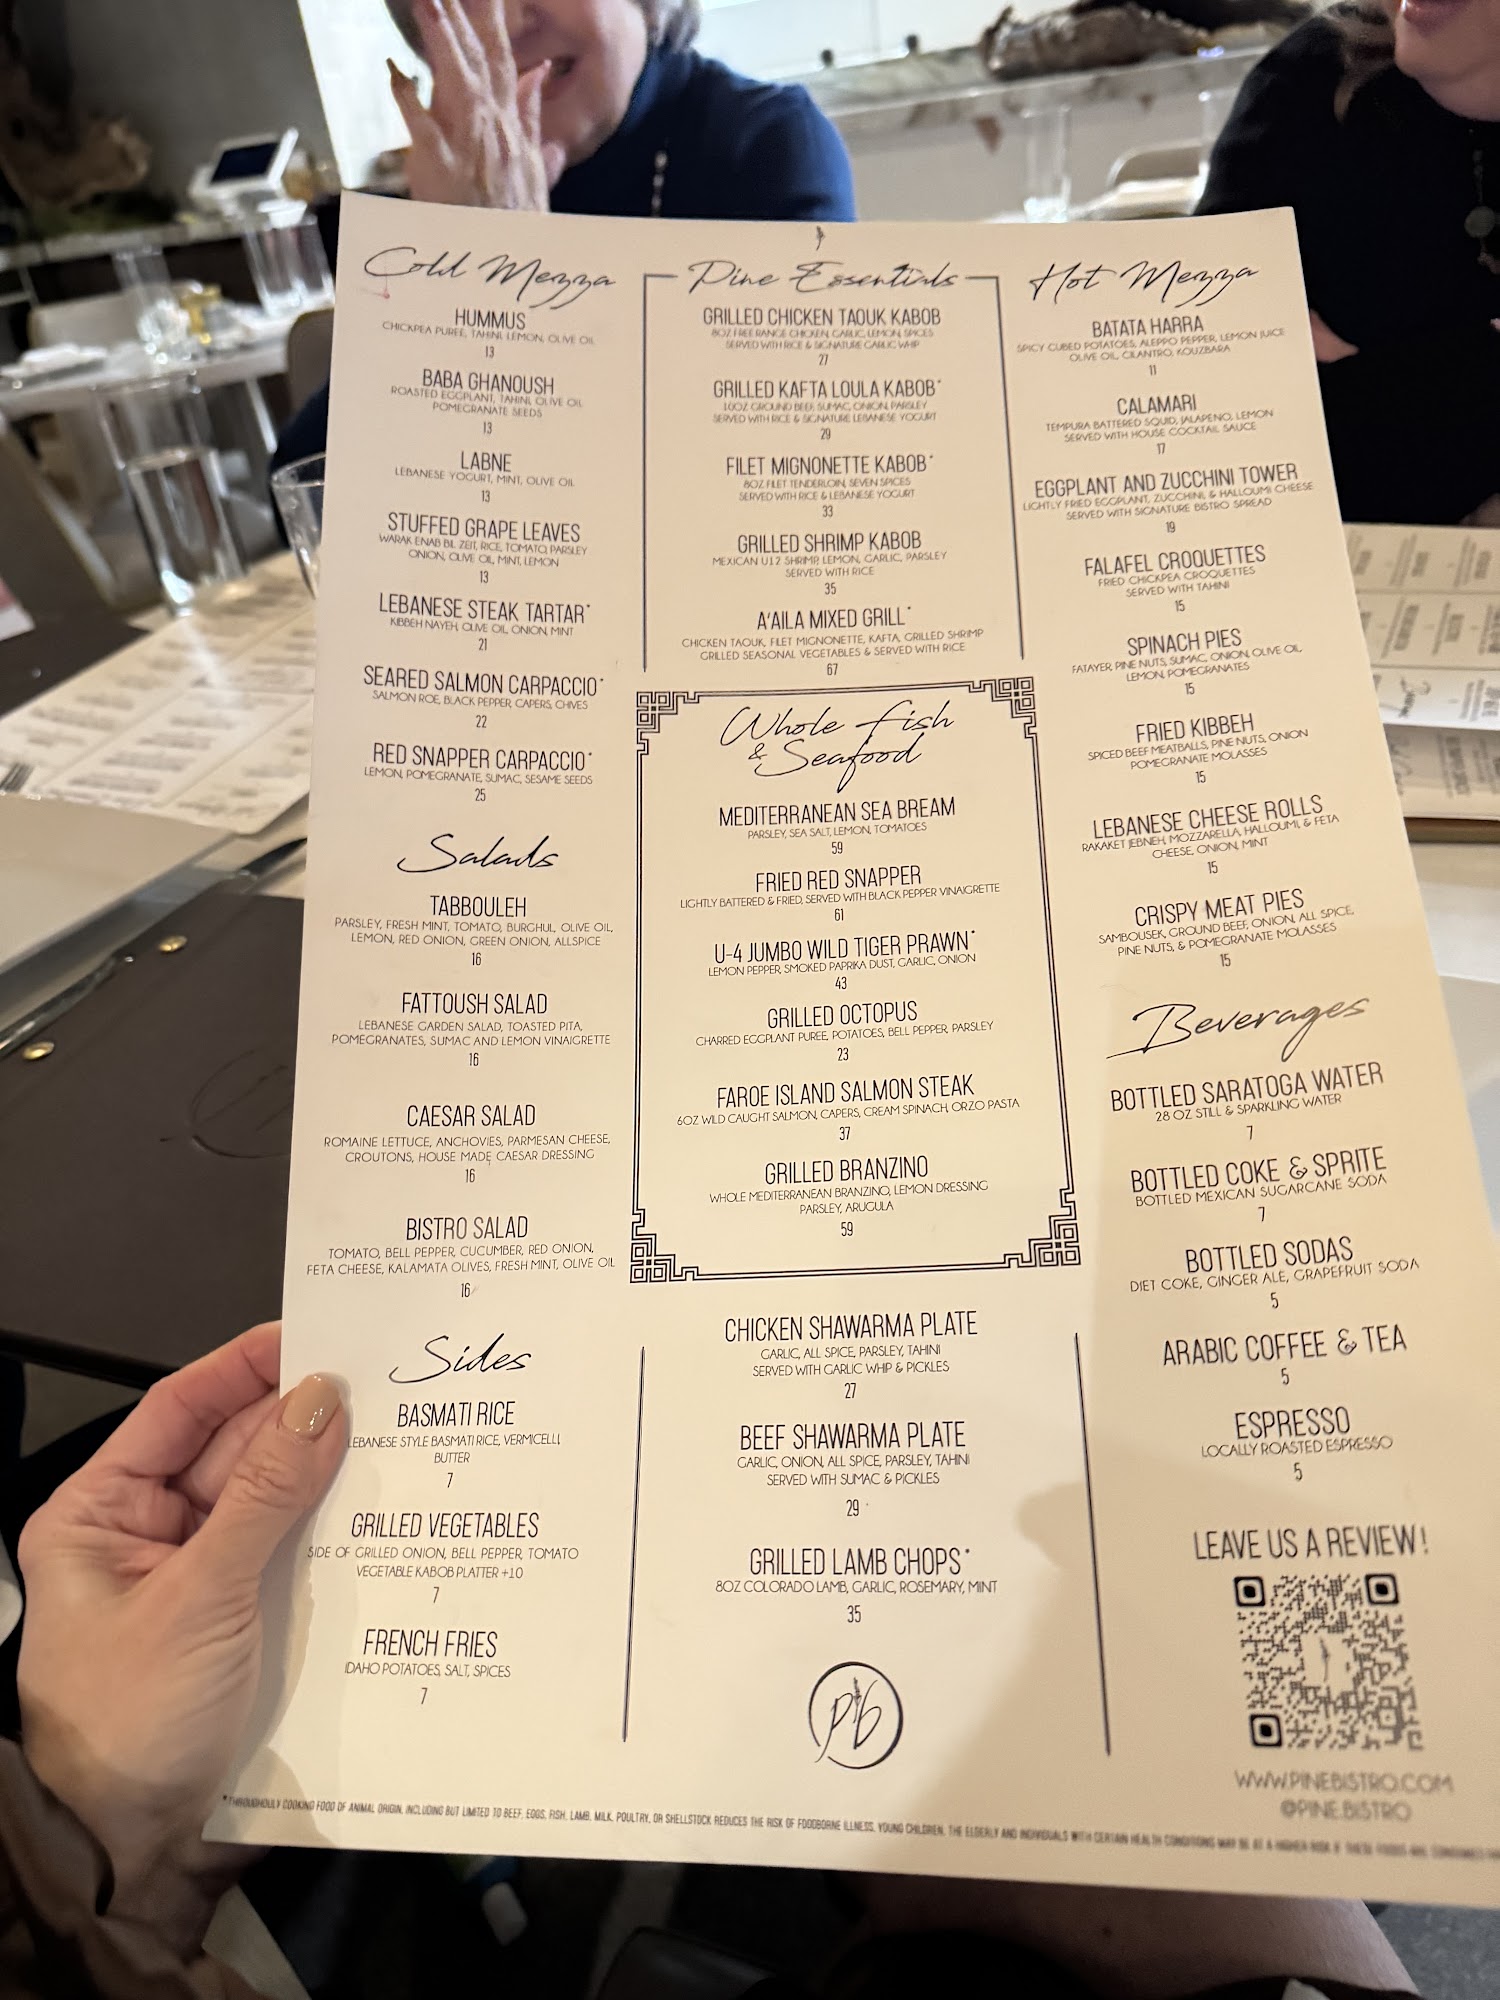 Cold Mezza
HUMMUS
CHICKPEA PUREE, TAHINI, LEMON, OLIVE OIL
13
BABA GHANOUSH
ROASTED EGGPLANT, TAHINI, OLIVE OIL
POMEGRANATE SEEDS
13
LABNE
LEBANESE YOGURT, MINT, OLIVE OIL
13
STUFFED GRAPE LEAVES
WARAK ENAB BIL ZEIT, RICE, TOMATO, PARSLEY
ONION, OLIVE OIL, MINT, LEMON
13
LEBANESE STEAK TARTAR*
KIBBEH NAYEH, OLIVE OIL, ONION, MINT
21
SEARED SALMON CARPACCIO*
SALMON ROE, BLACK PEPPER, CAPERS, CHIVES
22
RED SNAPPER CARPACCIO*
LEMON, POMEGRANATE, SUMAC, SESAME SEEDS
25
Salads
TABBOULEH
PARSLEY, FRESH MINT, TOMATO, BURGHUL, OLIVE OIL,
LEMON, RED ONION, GREEN ONION, ALLSPICE
16
FATTOUSH SALAD
LEBANESE GARDEN SALAD, TOASTED PITA,
POMEGRANATES, SUMAC AND LEMON VINAIGRETTE
16
CAESAR SALAD
ROMAINE LETTUCE, ANCHOVIES, PARMESAN CHEESE,
CROUTONS, HOUSE MADE CAESAR DRESSING
16
BISTRO SALAD
TOMATO, BELL PEPPER, CUCUMBER, RED ONION,
FETA CHEESE, KALAMATA OLIVES, FRESH MINT, OLIVE OIL
16
Sides
BASMATI RICE
LEBANESE STYLE BASMATI RICE, VERMICELLI,
BUTTER
7
GRILLED VEGETABLES
SIDE OF GRILLED ONION, BELL PEPPER, TOMATO
VEGETABLE KABOB PLATTER +10
7
FRENCH FRIES
IDAHO POTATOES, SALT, SPICES
7
Pine Essentials
GRILLED CHICKEN TAOUK KABOB
8OZ FREE RANGE CHICKEN, GARLIC, LEMON, SPICES
SERVED WITH RICE & SIGNATURE GARLIC WHIP
27
GRILLED KAFTA LOULA KABOB*
10OZ GROUND BEEF, SUMAC, ONION, PARSLEY
SERVED WITH RICE & SIGNATURE LEBANESE YOGURT
29
FILET MIGNONETTE KABOB*
8OZ FILET TENDERLOIN, SEVEN SPICES
SERVED WITH RICE & LEBANESE YOGURT
33
GRILLED SHRIMP KABOB
MEXICAN U12 SHRIMP, LEMON, GARLIC, PARSLEY
SERVED WITH RICE
35
A'AILA MIXED GRILL*
CHICKEN TAOUK, FILET MIGNONETTE, KAFTA, GRILLED SHRIMP
GRILLED SEASONAL VEGETABLES & SERVED WITH RICE
67
Whole Fish
& Seafood
MEDITERRANEAN SEA BREAM
PARSLEY, SEA SALT, LEMON, TOMATOES
59
FRIED RED SNAPPER
LIGHTLY BATTERED & FRIED, SERVED WITH BLACK PEPPER VINAIGRETTE
61
U-4 JUMBO WILD TIGER PRAWN*
LEMON PEPPER, SMOKED PAPRIKA DUST, GARLIC, ONION
43
GRILLED OCTOPUS
CHARRED EGGPLANT PUREE, POTATOES, BELL PEPPER, PARSLEY
23
FAROE ISLAND SALMON STEAK
6OZ WILD CAUGHT SALMON, CAPERS, CREAM SPINACH, ORZO PASTA
37
GRILLED BRANZINO
WHOLE MEDITERRANEAN BRANZINO, LEMON DRESSING
PARSLEY, ARUGULA
59
CHICKEN SHAWARMA PLATE
GARLIC, ALL SPICE, PARSLEY, TAHINI
SERVED WITH GARLIC WHIP & PICKLES
27
BEEF SHAWARMA PLATE
GARLIC, ONION, ALL SPICE, PARSLEY, TAHINI
SERVED WITH SUMAC & PICKLES
29
GRILLED LAMB CHOPS*
8OZ COLORADO LAMB, GARLIC, ROSEMARY, MINT
35
pb
Hot Mezza
BATATA HARRA
SPICY CUBED POTATOES, ALEPPO PEPPER, LEMON JUICE
OLIVE OIL, CILANTRO, KOUZBARA
11
CALAMARI
TEMPURA BATTERED SQUID, JALAPENO, LEMON
SERVED WITH HOUSE COCKTAIL SAUCE
17
EGGPLANT AND ZUCCHINI TOWER
LIGHTLY FRIED EGGPLANT, ZUCCHINI, & HALLOUMI CHEESE
SERVED WITH SIGNATURE BISTRO SPREAD
19
FALAFEL CROQUETTES
FRIED CHICKPEA CROQUETTES
SERVED WITH TAHINI
15
SPINACH PIES
FATAYER, PINE NUTS, SUMAC, ONION, OLIVE OIL,
LEMON, POMEGRANATES
15
FRIED KIBBEH
SPICED BEEF MEATBALLS, PINE NUTS, ONION
POMEGRANATE MOLASSES
15
LEBANESE CHEESE ROLLS
RAKAKET JEBNEH, MOZZARELLA, HALLOUMI, & FETA
CHEESE, ONION, MINT
15
CRISPY MEAT PIES
SAMBOUSEK, GROUND BEEF, ONION, ALL SPICE,
PINE NUTS, & POMEGRANATE MOLASSES
15
Beverages
BOTTLED SARATOGA WATER
28 OZ STILL & SPARKLING WATER
7
BOTTLED COKE & SPRITE
BOTTLED MEXICAN SUGARCANE SODA
7
BOTTLED SODAS
DIET COKE, GINGER ALE, GRAPEFRUIT SODA
5
ARABIC COFFEE & TEA
5
ESPRESSO
LOCALLY ROASTED ESPRESSO
5
LEAVE US A REVIEW!
WWW.PINEBISTRO.COM
@PINE.BISTRO
*THROUGHOULY COOKING FOOD OF ANIMAL ORIGIN, INCLUDING BUT LIMITED TO BEEF, EGGS, FISH, LAMB, MILK, POULTRY, OR SHELLSTOCK REDUCES THE RISK OF FOODBORNE ILLNESS. YOUNG CHILDREN, THE ELDERLY AND INDIVIDUALS WITH CERTAIN HEALTH CONDITIONS MAY BE AT A HIGHER RISK IF THESE FOODS ARE CONSUMED